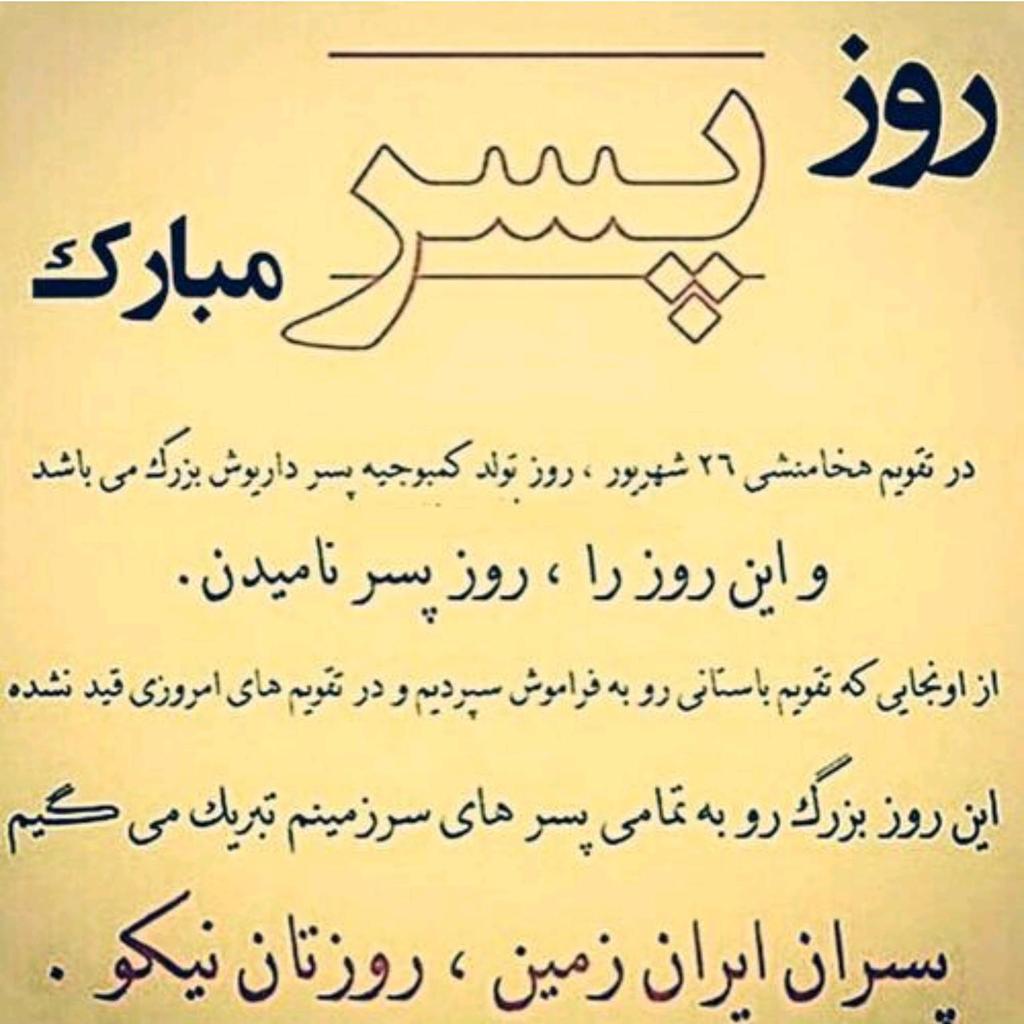 روز
پسر
مبارک
در تقویم هخامنشی ۲۶ شهریور ، روز تولد کمبوجیه پسر داریوش بزرگ می باشد
و این روز را ، روز پسر نامیدن .
از اونجایی که تقویم باستانی رو به فراموش سپردیم و در تقویم های امروزی قید نشده
این روز بزرگ رو به تمامی پسر های سرزمینم تبریک می گیم
پسران ایران زمین ، روزتان نیکو .